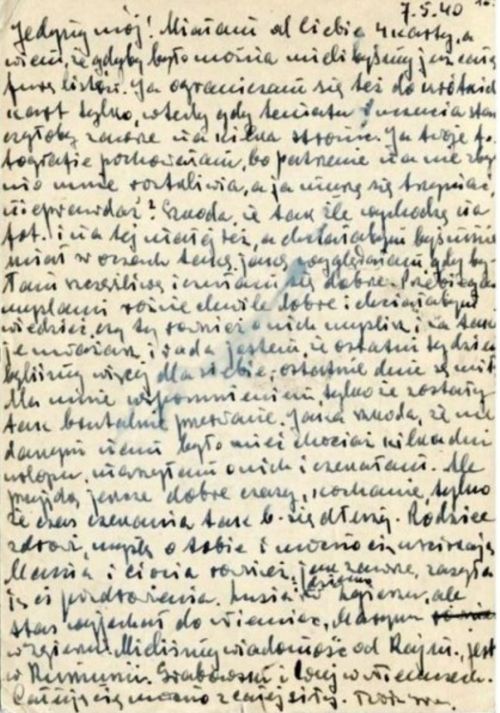 7.5.40
Jedyny mój! Miałam od Ciebie 4 karty, a
wiem, że gdyby było można mielibyśmy już całą
furę listów. Ja ograniczam się też do krótkich
kart tylko, wtedy gdy tematu i uczucia star
czyłoby zawsze na kilka stronic. Ja twoje fo
tografie pochowałam, bo patrzenie na nie zby
tnio mnie roztkliwia, a ja muszę się trzymać
nieprawdaż? Szkoda, że tak źle wychodzę na
fot. i na tej małej też, a chciałabym byś mnie
miał w oczach taką jaką wyglądałam gdy by
łam szczęśliwa i śmiałam się dobrze. Przebiegam
myślami różne chwile dobre i chciałabym
wiedzieć, czy ty również o nich myślisz i na tak
je i rada jestem, że ostatni tydzień
byliśmy więcej dla siebie, ostatnie dnie są mi
dla mnie wspomnieniem, tylko że zostały
tak brutalnie przerwane. Jaka szkoda, że nie
danym nam było mieć chociaż kilka dni
urlopu, marzyłam o nich i czekałam. Ale
przyjdą jeszcze dobre czasy, kochanie, tylko
że czas czekania tak b. się dłuży. Rodzice
zdrowi, myślą o tobie i mocno cię uściskają
Mania i ciocia również, jak zawsze, zasyła
ją ci pozdrowienia. Lusia w Zgierzu, ale
Staś wyjechał do Niemiec,
w Zgierzu. Mieliśmy wiadomość od jest
w Rumunii. Grabowski i w Niemczech.
Całuję cię mocno z całej siły.